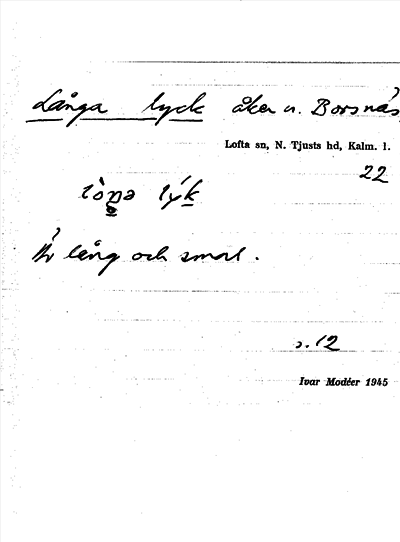 Långa lyck åker n. Borsnäs
Lofta sn, N. Tjusts hd, Kalm. l.
22
lòŋa lýk
Är lång och smal.
s. 12
Ivar Modéer 1945